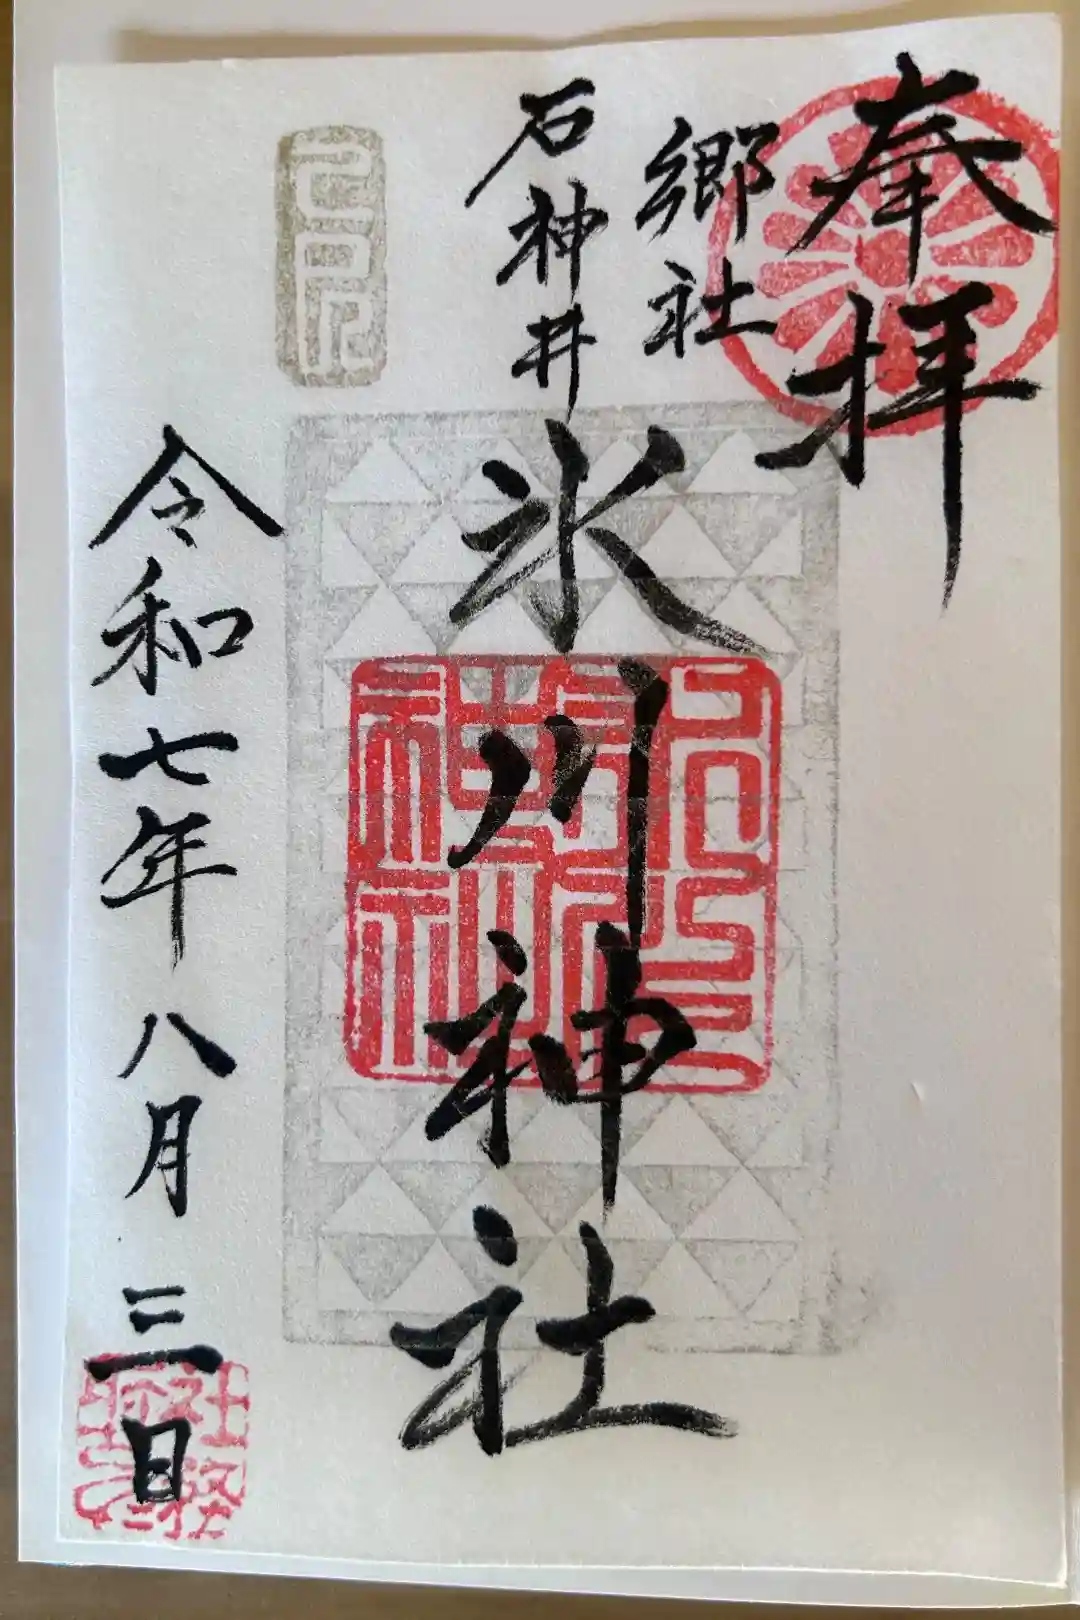 奉拝
郷社
石神井
氷川神社
令和七年八月三日